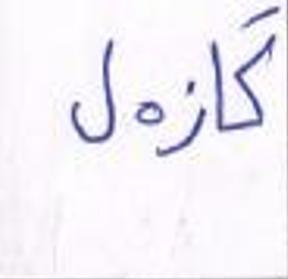 گازەل